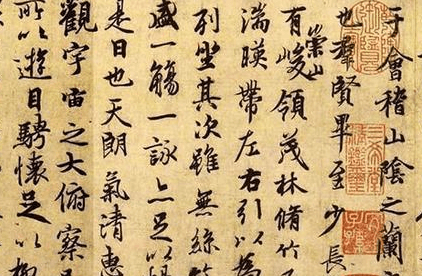 于會稽山陰之蘭
也羣賢畢至少長
有崇山峻領茂林脩竹
湍暎帶左右引以為
列坐其次雖無絲
盛一觴一詠亦足以
是日也天朗氣清惠
觀宇宙之大俯察
所以遊目騁懷足以